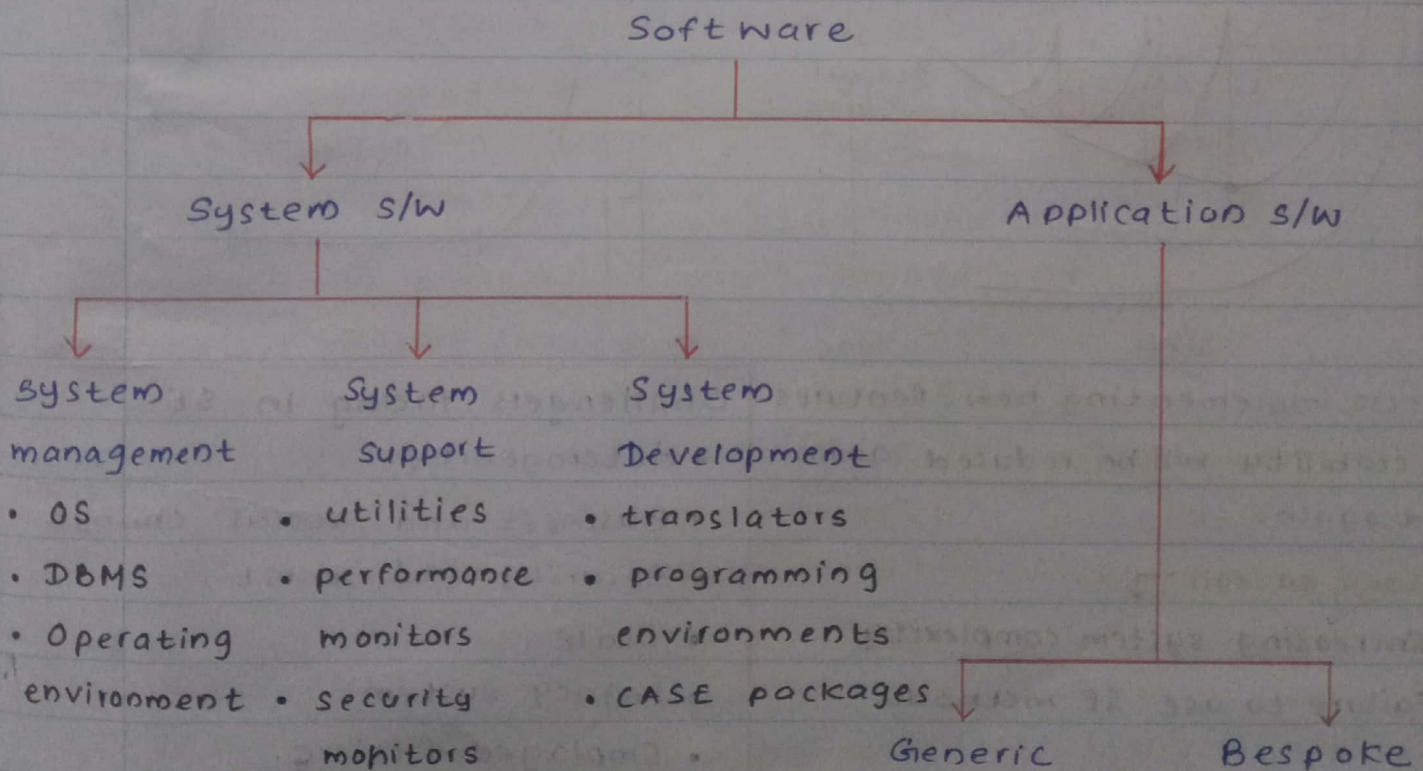 Software
System s/w
Application s/w
System management
• OS
• DBMS
• Operating environment
System support
• utilities
• performance monitors
• security monitors
System Development
• translators
• programming environments
• CASE packages
Generic
Bespoke